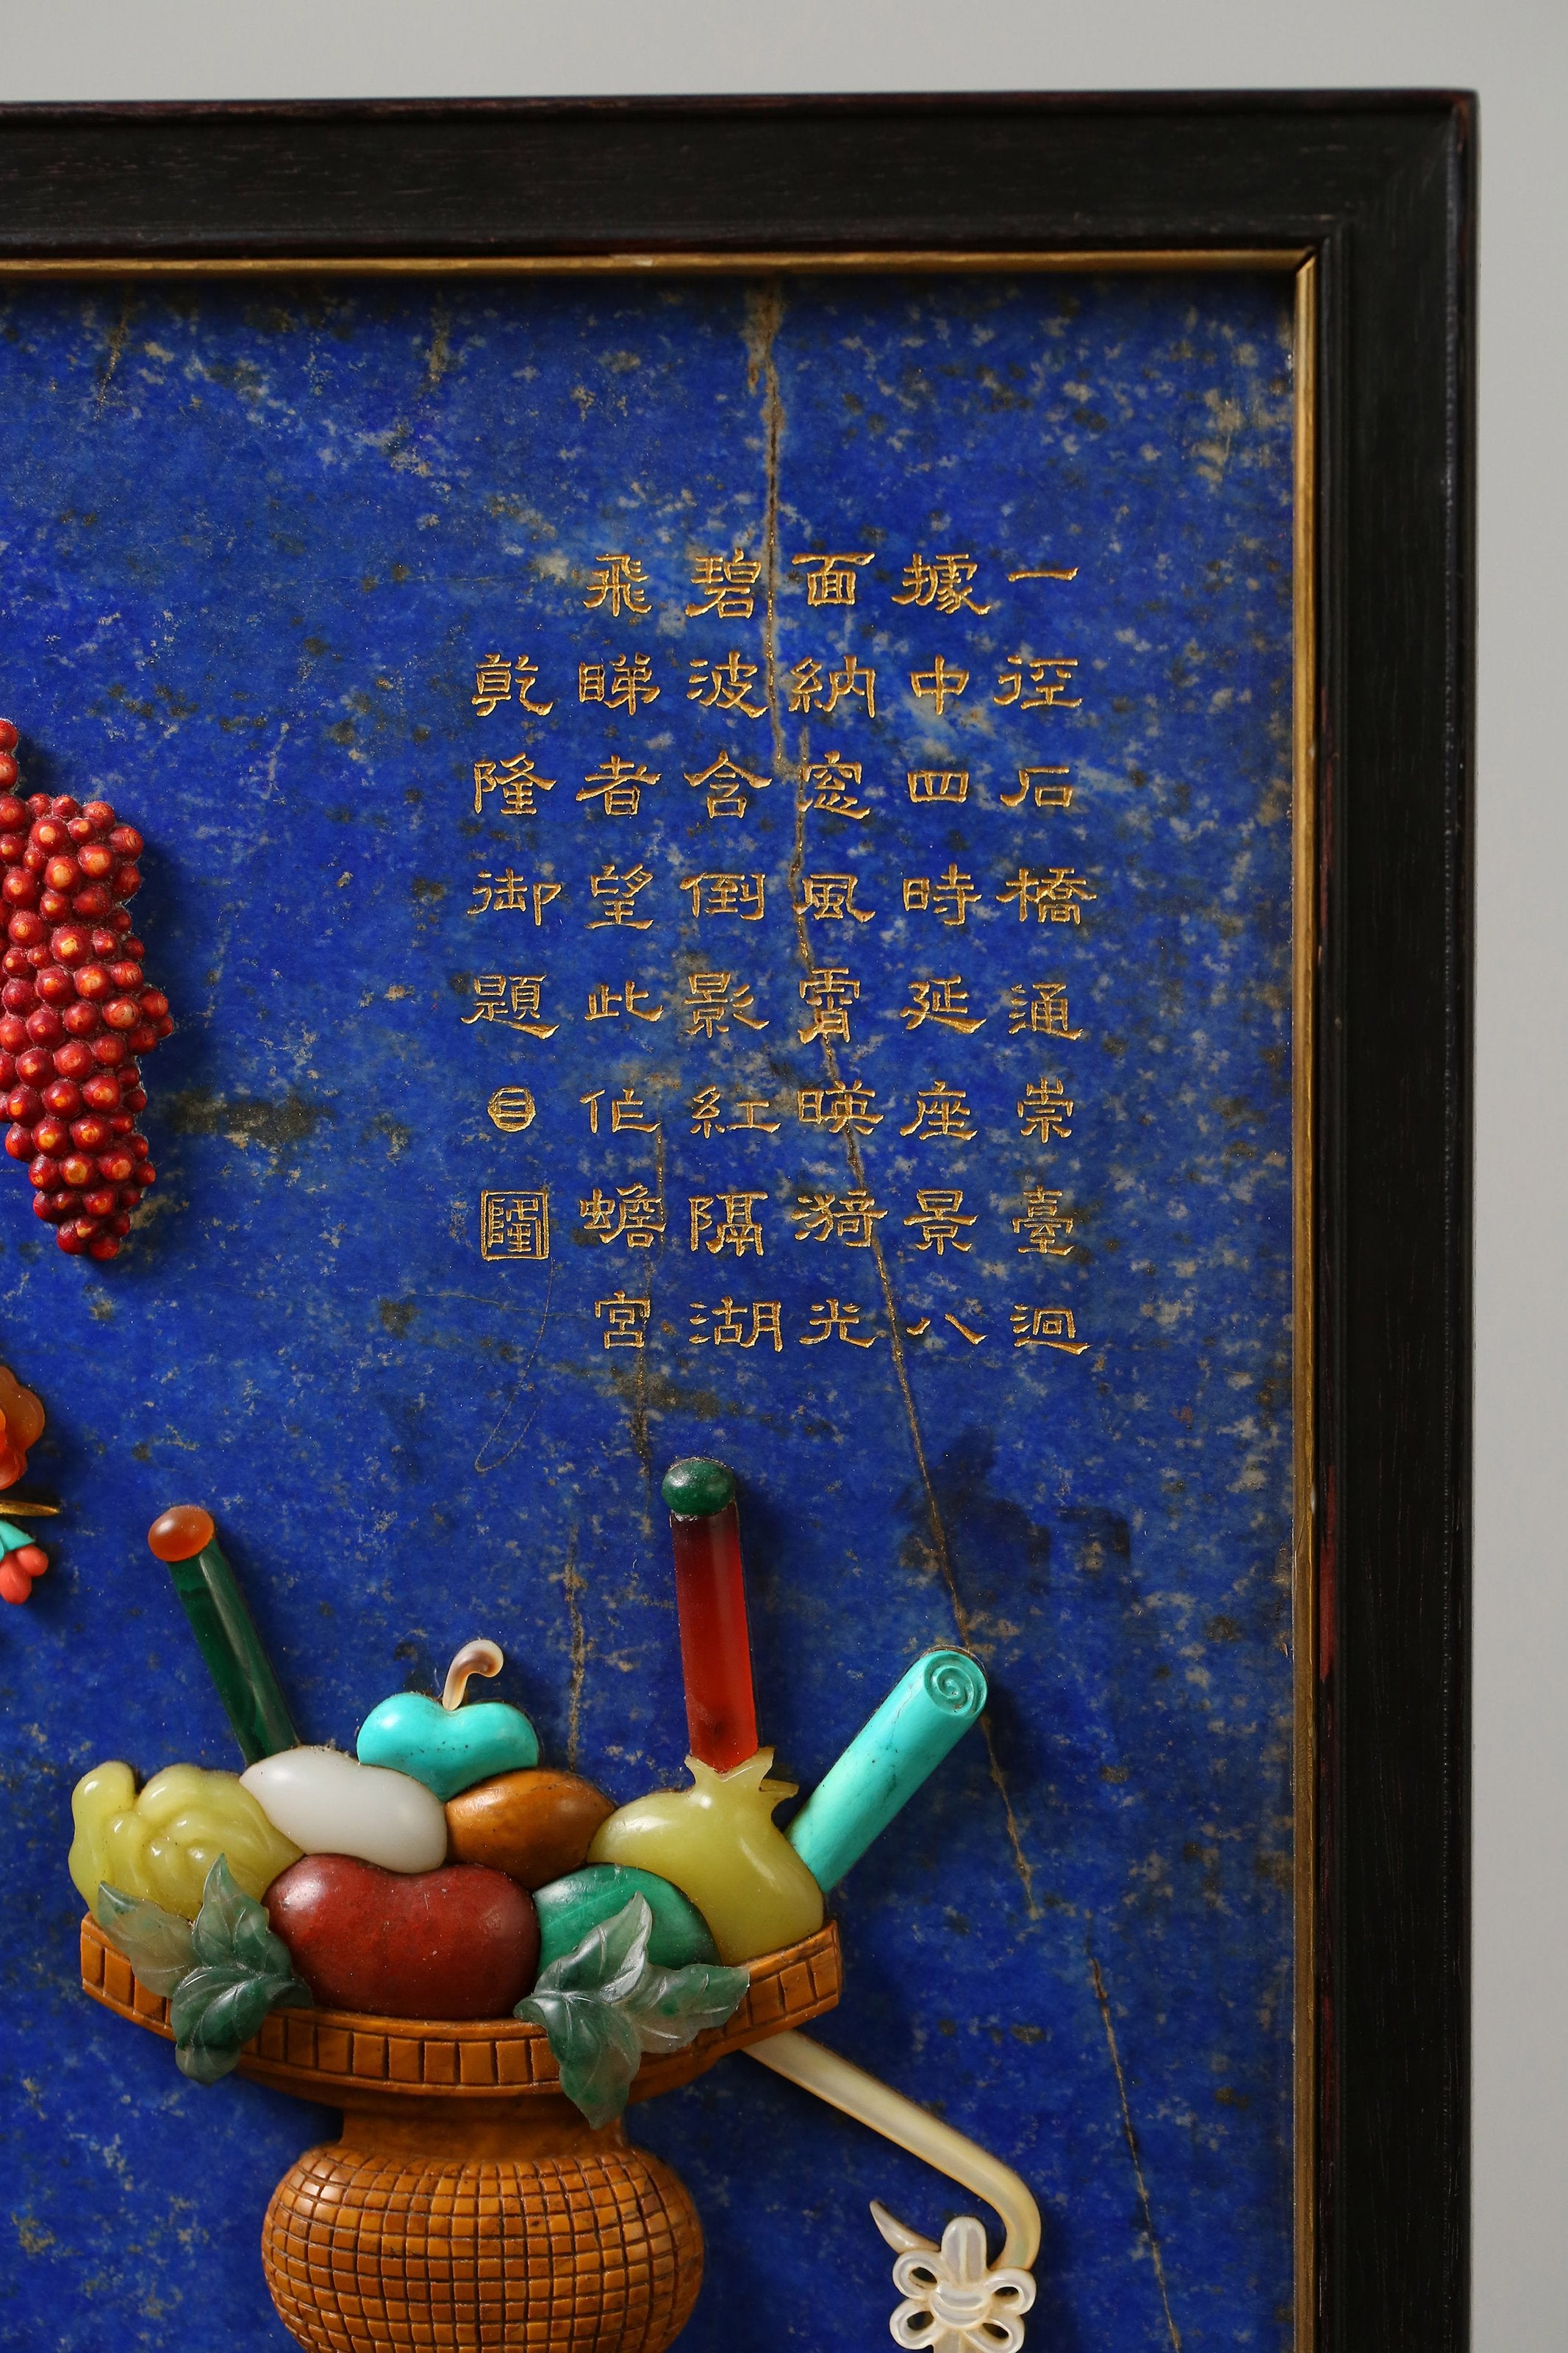 一徑石橋通崇臺迥
據中四時延座景八
面納窓風霄暎漪光
碧波含倒影紅隔湖
飛睇者望此作蟾宮
乾隆御題
☰
隆